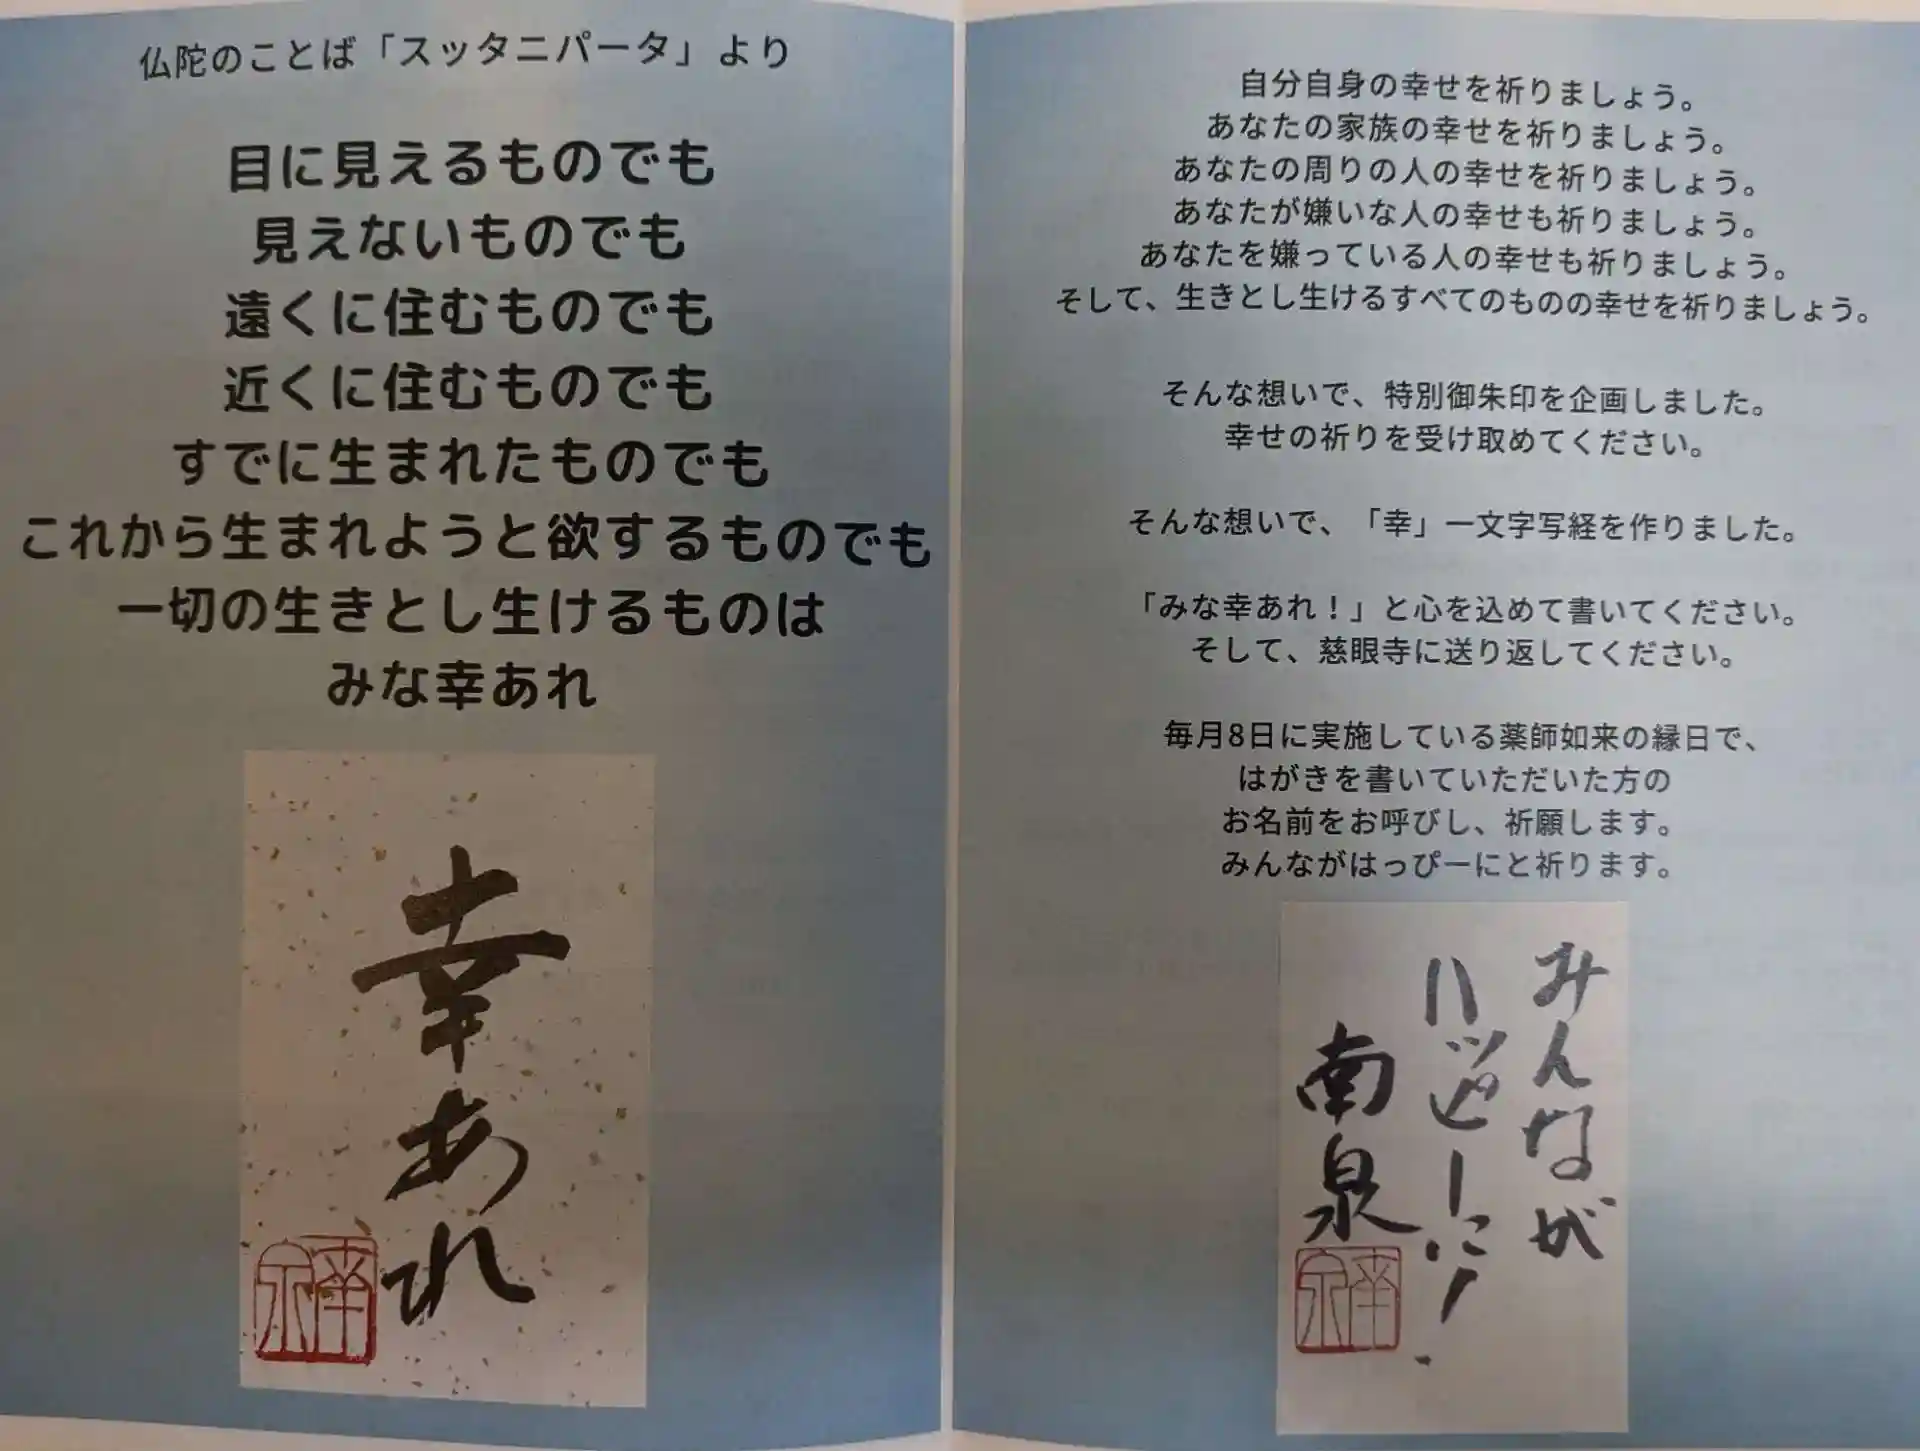 仏陀のことば「スッタニパータ」より
目に見えるものでも
見えないものでも
遠くに住むものでも
近くに住むものでも
すでに生まれたものでも
これから生まれようと欲するものでも
一切の生きとし生けるものは
みな幸あれ
幸あれ
南泉
自分自身の幸せを祈りましょう。
あなたの家族の幸せを祈りましょう。
あなたの周りの人の幸せを祈りましょう。
あなたが嫌いな人の幸せも祈りましょう。
あなたを嫌っている人の幸せも祈りましょう。
そして、生きとし生けるすべてのものの幸せを祈りましょう。
そんな想いで、特別御朱印を企画しました。
幸せの祈りを受け取めてください。
そんな想いで、「幸」一文字写経を作りました。
「みな幸あれ！」と心を込めて書いてください。
そして、慈眼寺に送り返してください。
毎月8日に実施している薬師如来の縁日で、
はがきを書いていただいた方の
お名前をお呼びし、祈願します。
みんながはっぴーにと祈ります。
みんなが
ハッピーに！
南泉
南泉